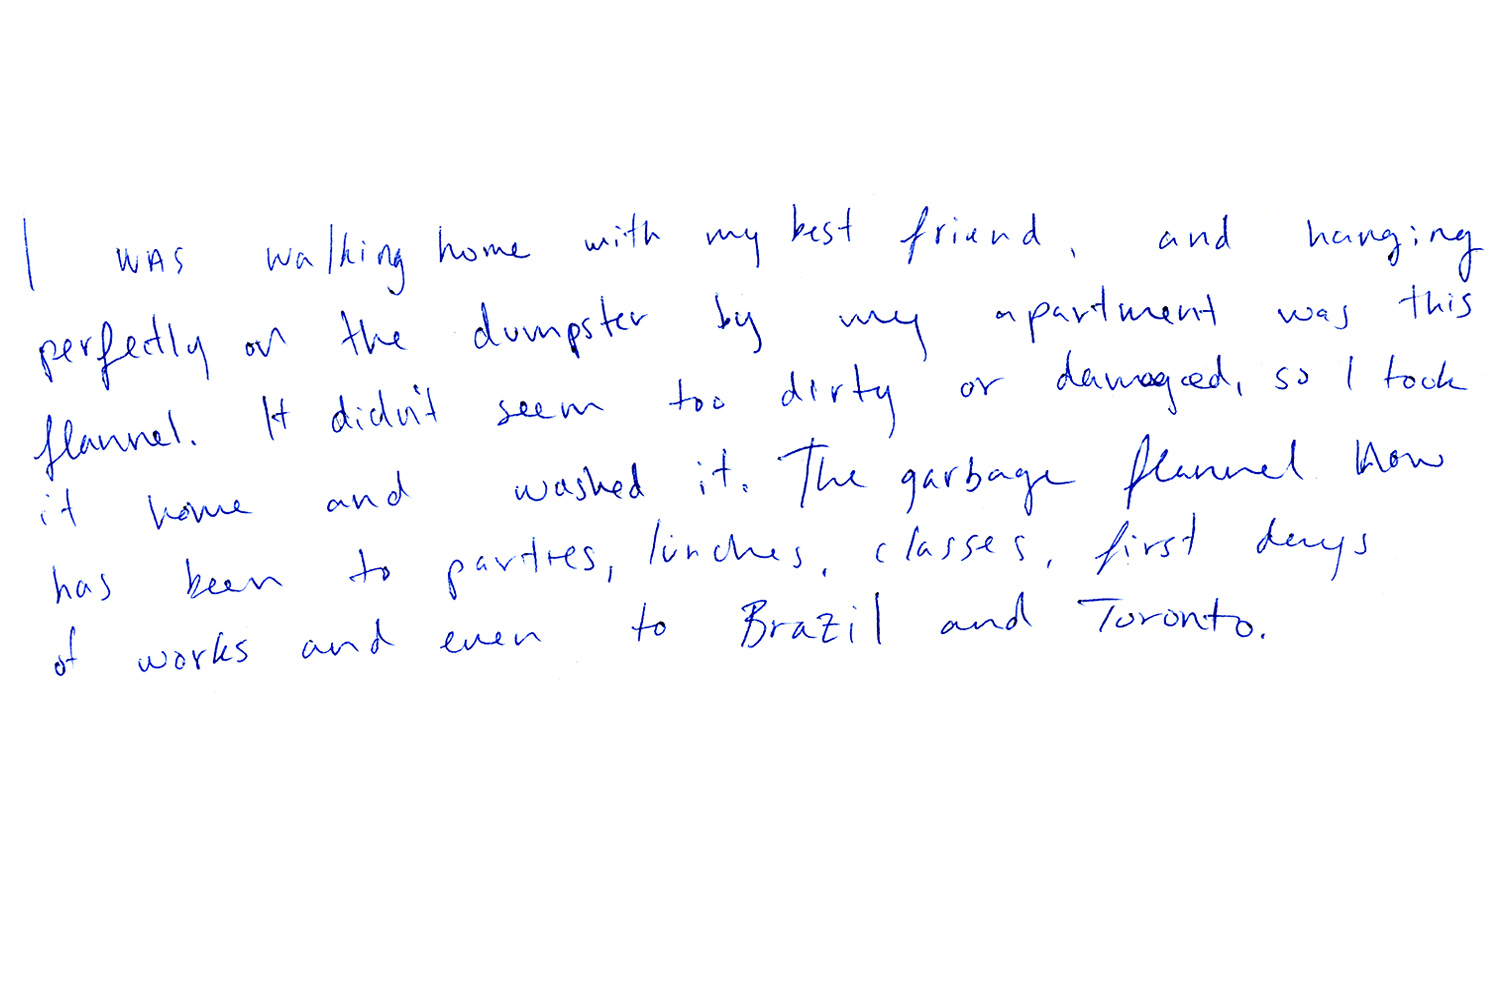 I was walking home with my best friend, and hanging
perfectly on the dumpster by my apartment was this
flannel. It didn't seem too dirty or damaged, so I took
it home and washed it. The garbage flannel now
has been to parties, lunches, classes, first days
of works and even to Brazil and Toronto.